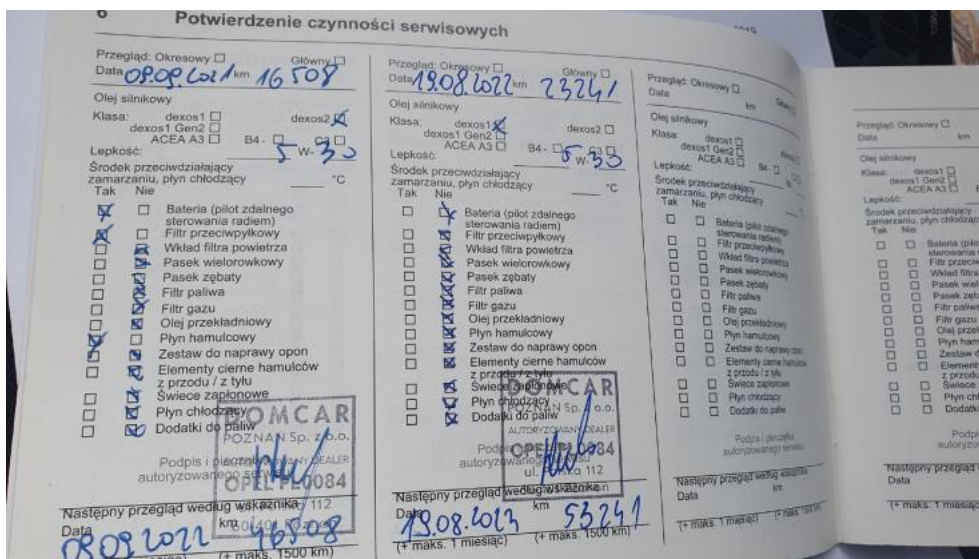 6 Potwierdzenie czynności serwisowych
Przegląd: Okresowy Główny
Data 09.09.2021 km 16508
Olej silnikowy
Klasa: dexos1 dexos2
dexos1 Gen2
ACEA A3 B4- C3
Lepkość: 5 W- 30
Środek przeciwdziałający
zamarzaniu, płyn chłodzący °C
Tak Nie
Bateria (pilot zdalnego
sterowania radiem)
Filtr przeciwpyłkowy
Wkład filtra powietrza
Pasek wielorowkowy
Pasek zębaty
Filtr paliwa
Filtr gazu
Olej przekładniowy
Płyn hamulcowy
Zestaw do naprawy opon
Elementy cierne hamulców
z przodu / z tyłu
Świece zapłonowe
Płyn chłodzący
Dodatki do paliw
DOMCAR
POZNAŃ Sp. z o.o.
DEALER
OPEL PL0084
112
Podpis i
autoryzowanego
Następny przegląd według wskaźnika
Data km
09.09.2022 46508
(+ maks. 1500 km)
Przegląd: Okresowy Główny
Data 19.08.2022 km 23241
Olej silnikowy
Klasa: dexos1 dexos2
dexos1 Gen2
ACEA A3 B4- C3
Lepkość: 5 W- 30
Środek przeciwdziałający
zamarzaniu, płyn chłodzący °C
Tak Nie
Bateria (pilot zdalnego
sterowania radiem)
Filtr przeciwpyłkowy
Wkład filtra powietrza
Pasek wielorowkowy
Pasek zębaty
Filtr paliwa
Filtr gazu
Olej przekładniowy
Płyn hamulcowy
Zestaw do naprawy opon
Elementy cierne hamulców
z przodu / z tyłu
Świece zapłonowe
Płyn chłodzący
Dodatki do paliw
DOMCAR
POZNAŃ Sp. z o.o.
AUTORYZOWANY DEALER
OPEL PL0084
ul. 112
autoryzowanego
Następny przegląd według wskaźnika
Data km
19.08.2023 53241
(+ maks. 1 miesiąc) (+ maks. 1500 km)
Przegląd: Okresowy
Data km
Olej silnikowy
Klasa: dexos1
dexos1 Gen2
ACEA A3 B4-
Lepkość:
Środek przeciwdziałający
zamarzaniu, płyn chłodzący
Tak Nie
Bateria (pilot zdalnego
sterowania radiem)
Filtr przeciwpyłkowy
Wkład filtra powietrza
Pasek wielorowkowy
Pasek zębaty
Filtr paliwa
Filtr gazu
Olej przekładniowy
Płyn hamulcowy
Zestaw do naprawy opon
Elementy cierne hamulców
z przodu / z tyłu
Świece zapłonowe
Płyn chłodzący
Dodatki do paliw
Podpis i pieczątka
autoryzowanego serwisu
Następny przegląd według wskaźnika
Data km
(+ maks. 1 miesiąc) (+ maks. 1500 km)
Przegląd: Okresowy
Data km
Olej silnikowy
Klasa: dexos1
dexos1 Gen2
ACEA A3
Lepkość:
Środek przeciwdziałający
zamarzaniu, płyn chłodzący
Tak Nie
Bateria (pil
sterowania
Filtr przeciw
Wkład filtra
Pasek wiel
Pasek zęb
Filtr paliwa
Filtr gazu
Olej przek
Płyn ham
Zestaw d
Element
z przodu
Świece
Płyn chł
Dodatki
Podpi
autoryzo
Następny przegląd
Data
(+ maks. 1 miesiąc)